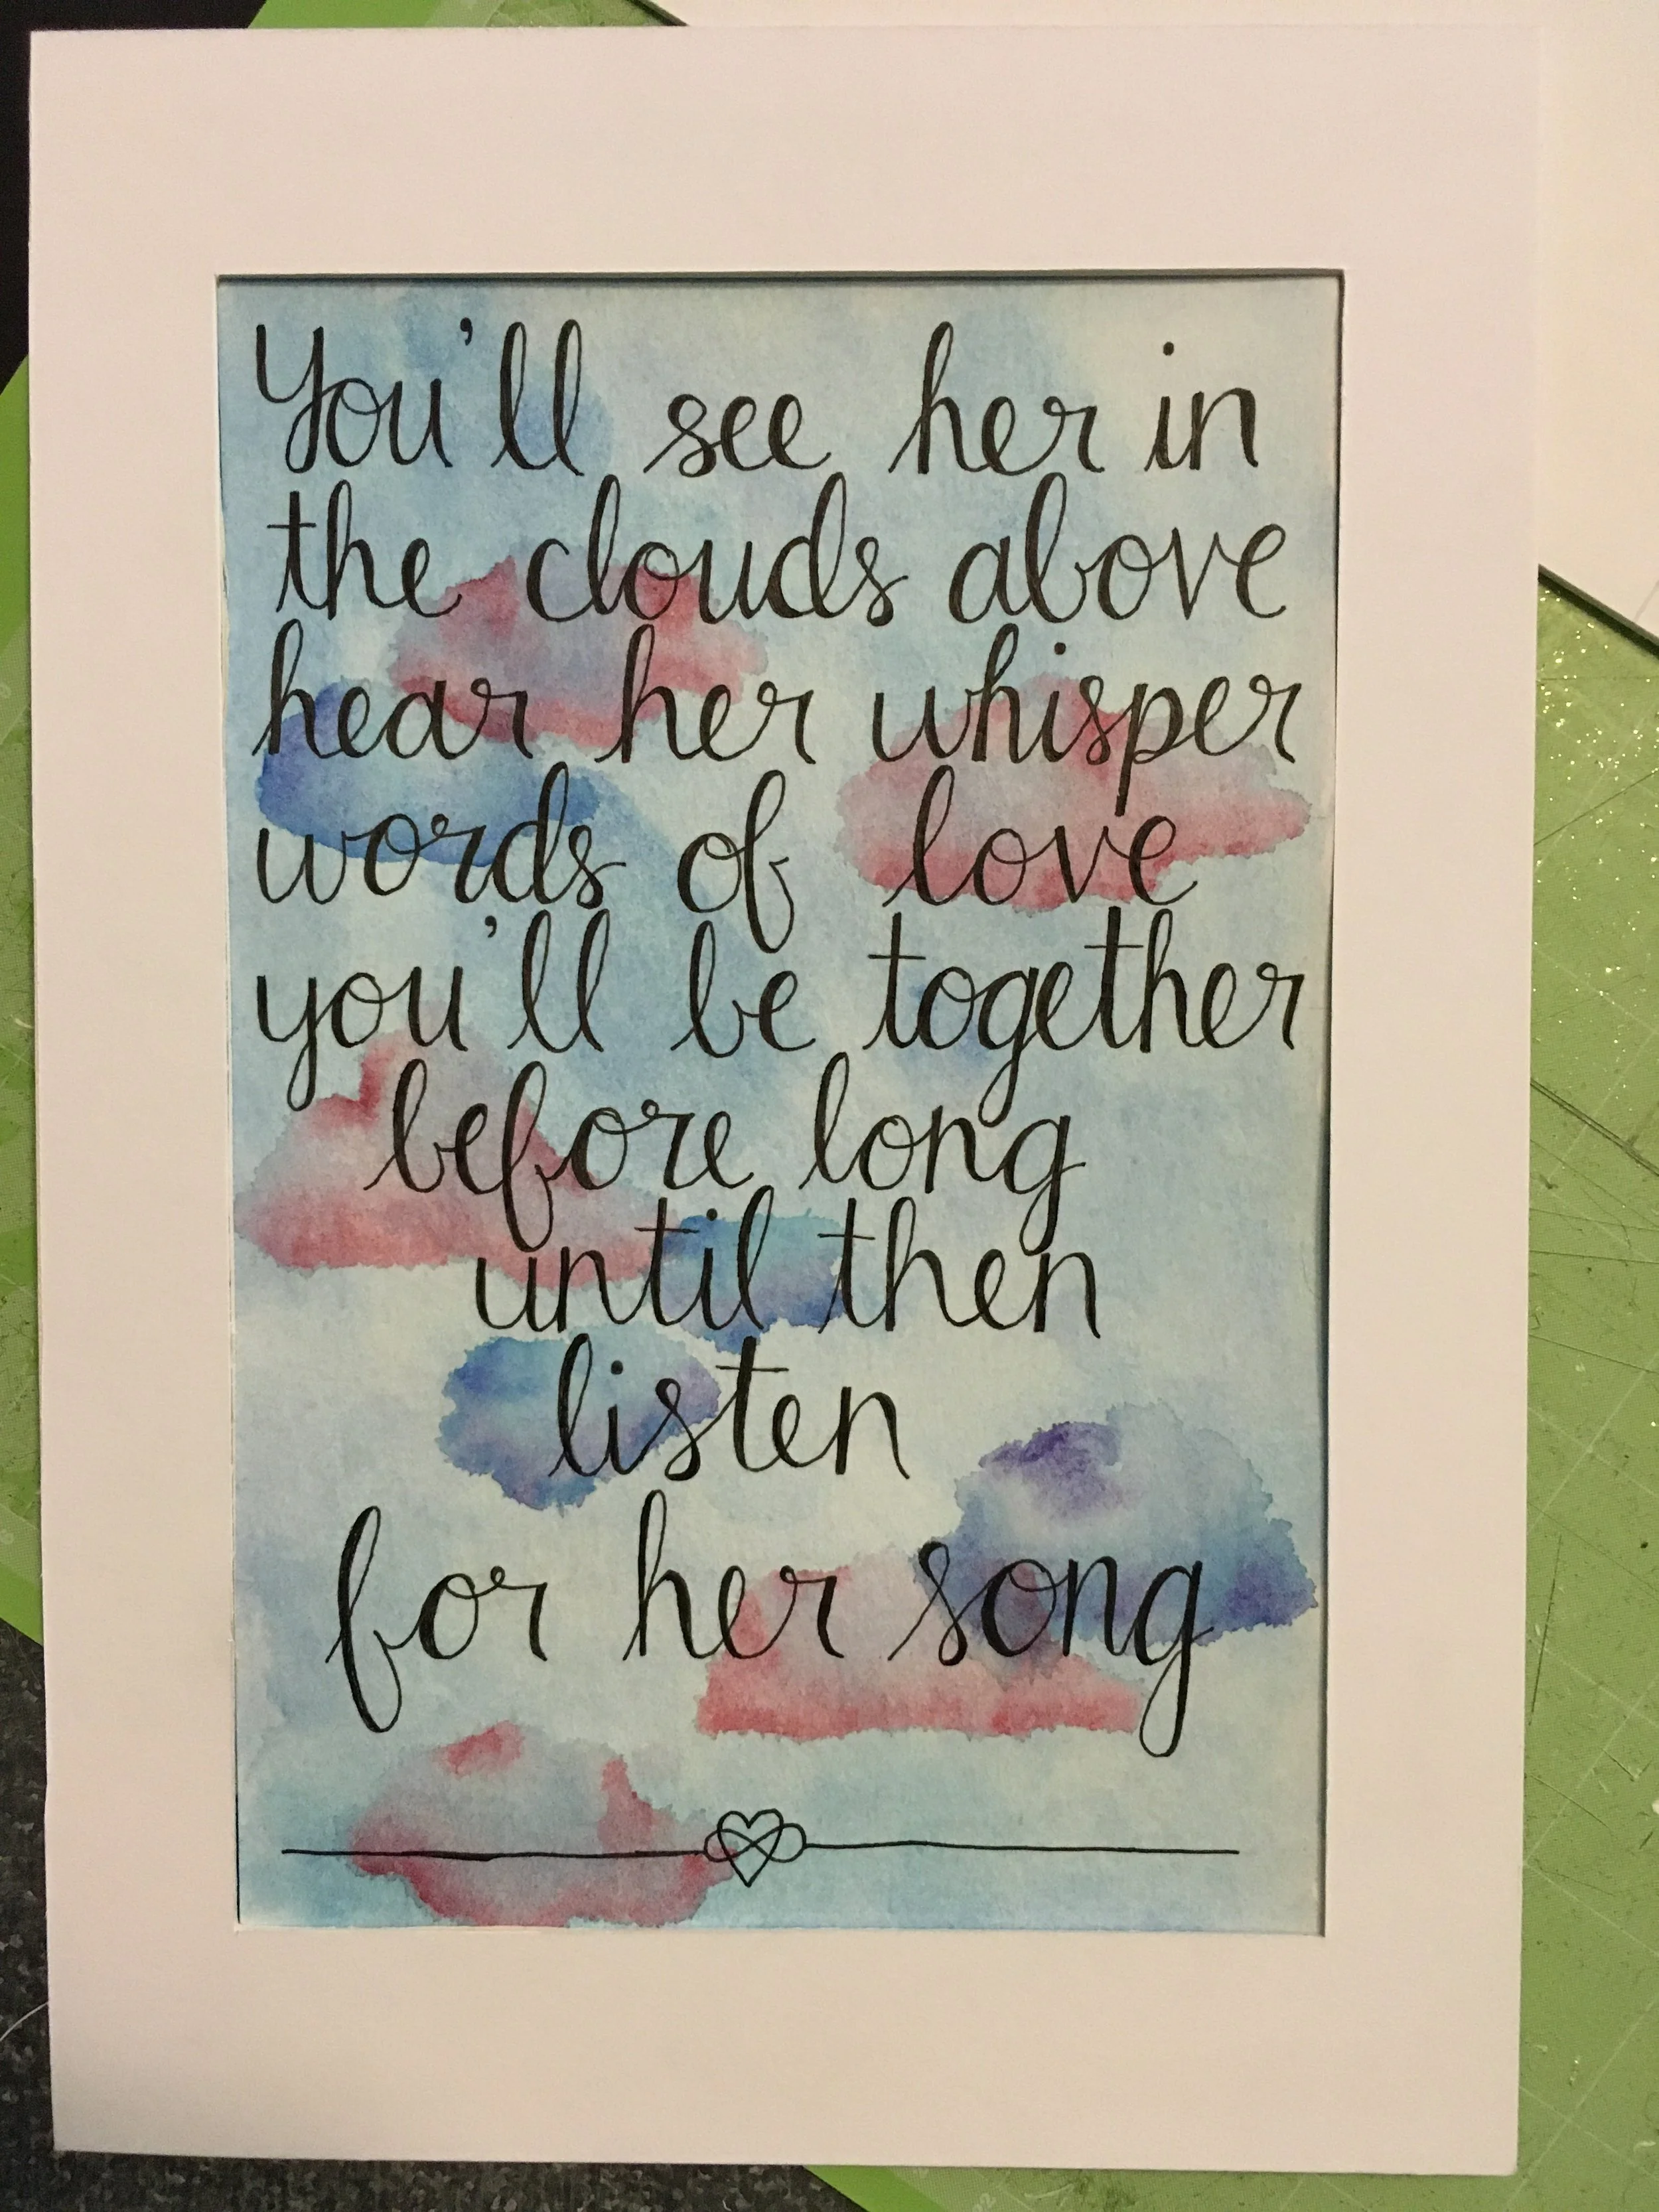 You'll see her in
the clouds above
hear her whisper
words of love
you'll be together
before long
until then
listen
for her song